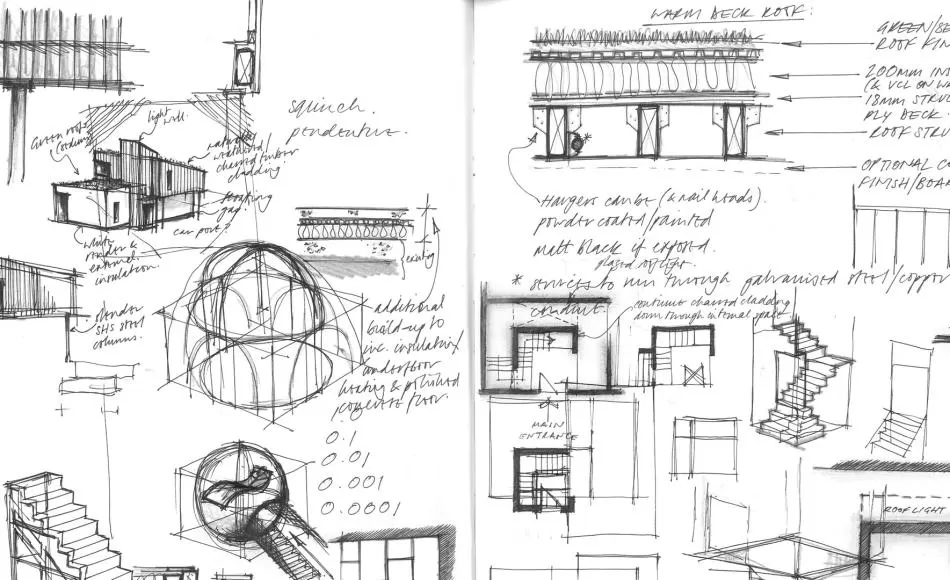 squinch.
pendentive.
light
well.
Green roofs
(sedum)
naturally
weathered/
charred timber
cladding
shading
gap.
car port?
white
render &
external
insulation.
slender
SHS steel
columns.
existing
additional
build-up to
inc. insulation
underfloor
heating & polished
concrete floor.
0.1
0.01
0.001
0.0001
WARM DECK ROOF:
GREEN/SE
ROOF FIN
200mm IN
(& VCL ON WA
18mm STRU
PLY DECK.
ROOF STRU
OPTIONAL C
FINISH/BOA
Hangers can be (& nail heads).
powder coated/painted
matt black if exposed.
* services to run through galvanised steel/coppe
conduit.
continue charred cladding
down through internal space
MAIN
ENTRANCE
ROOFLIGHT